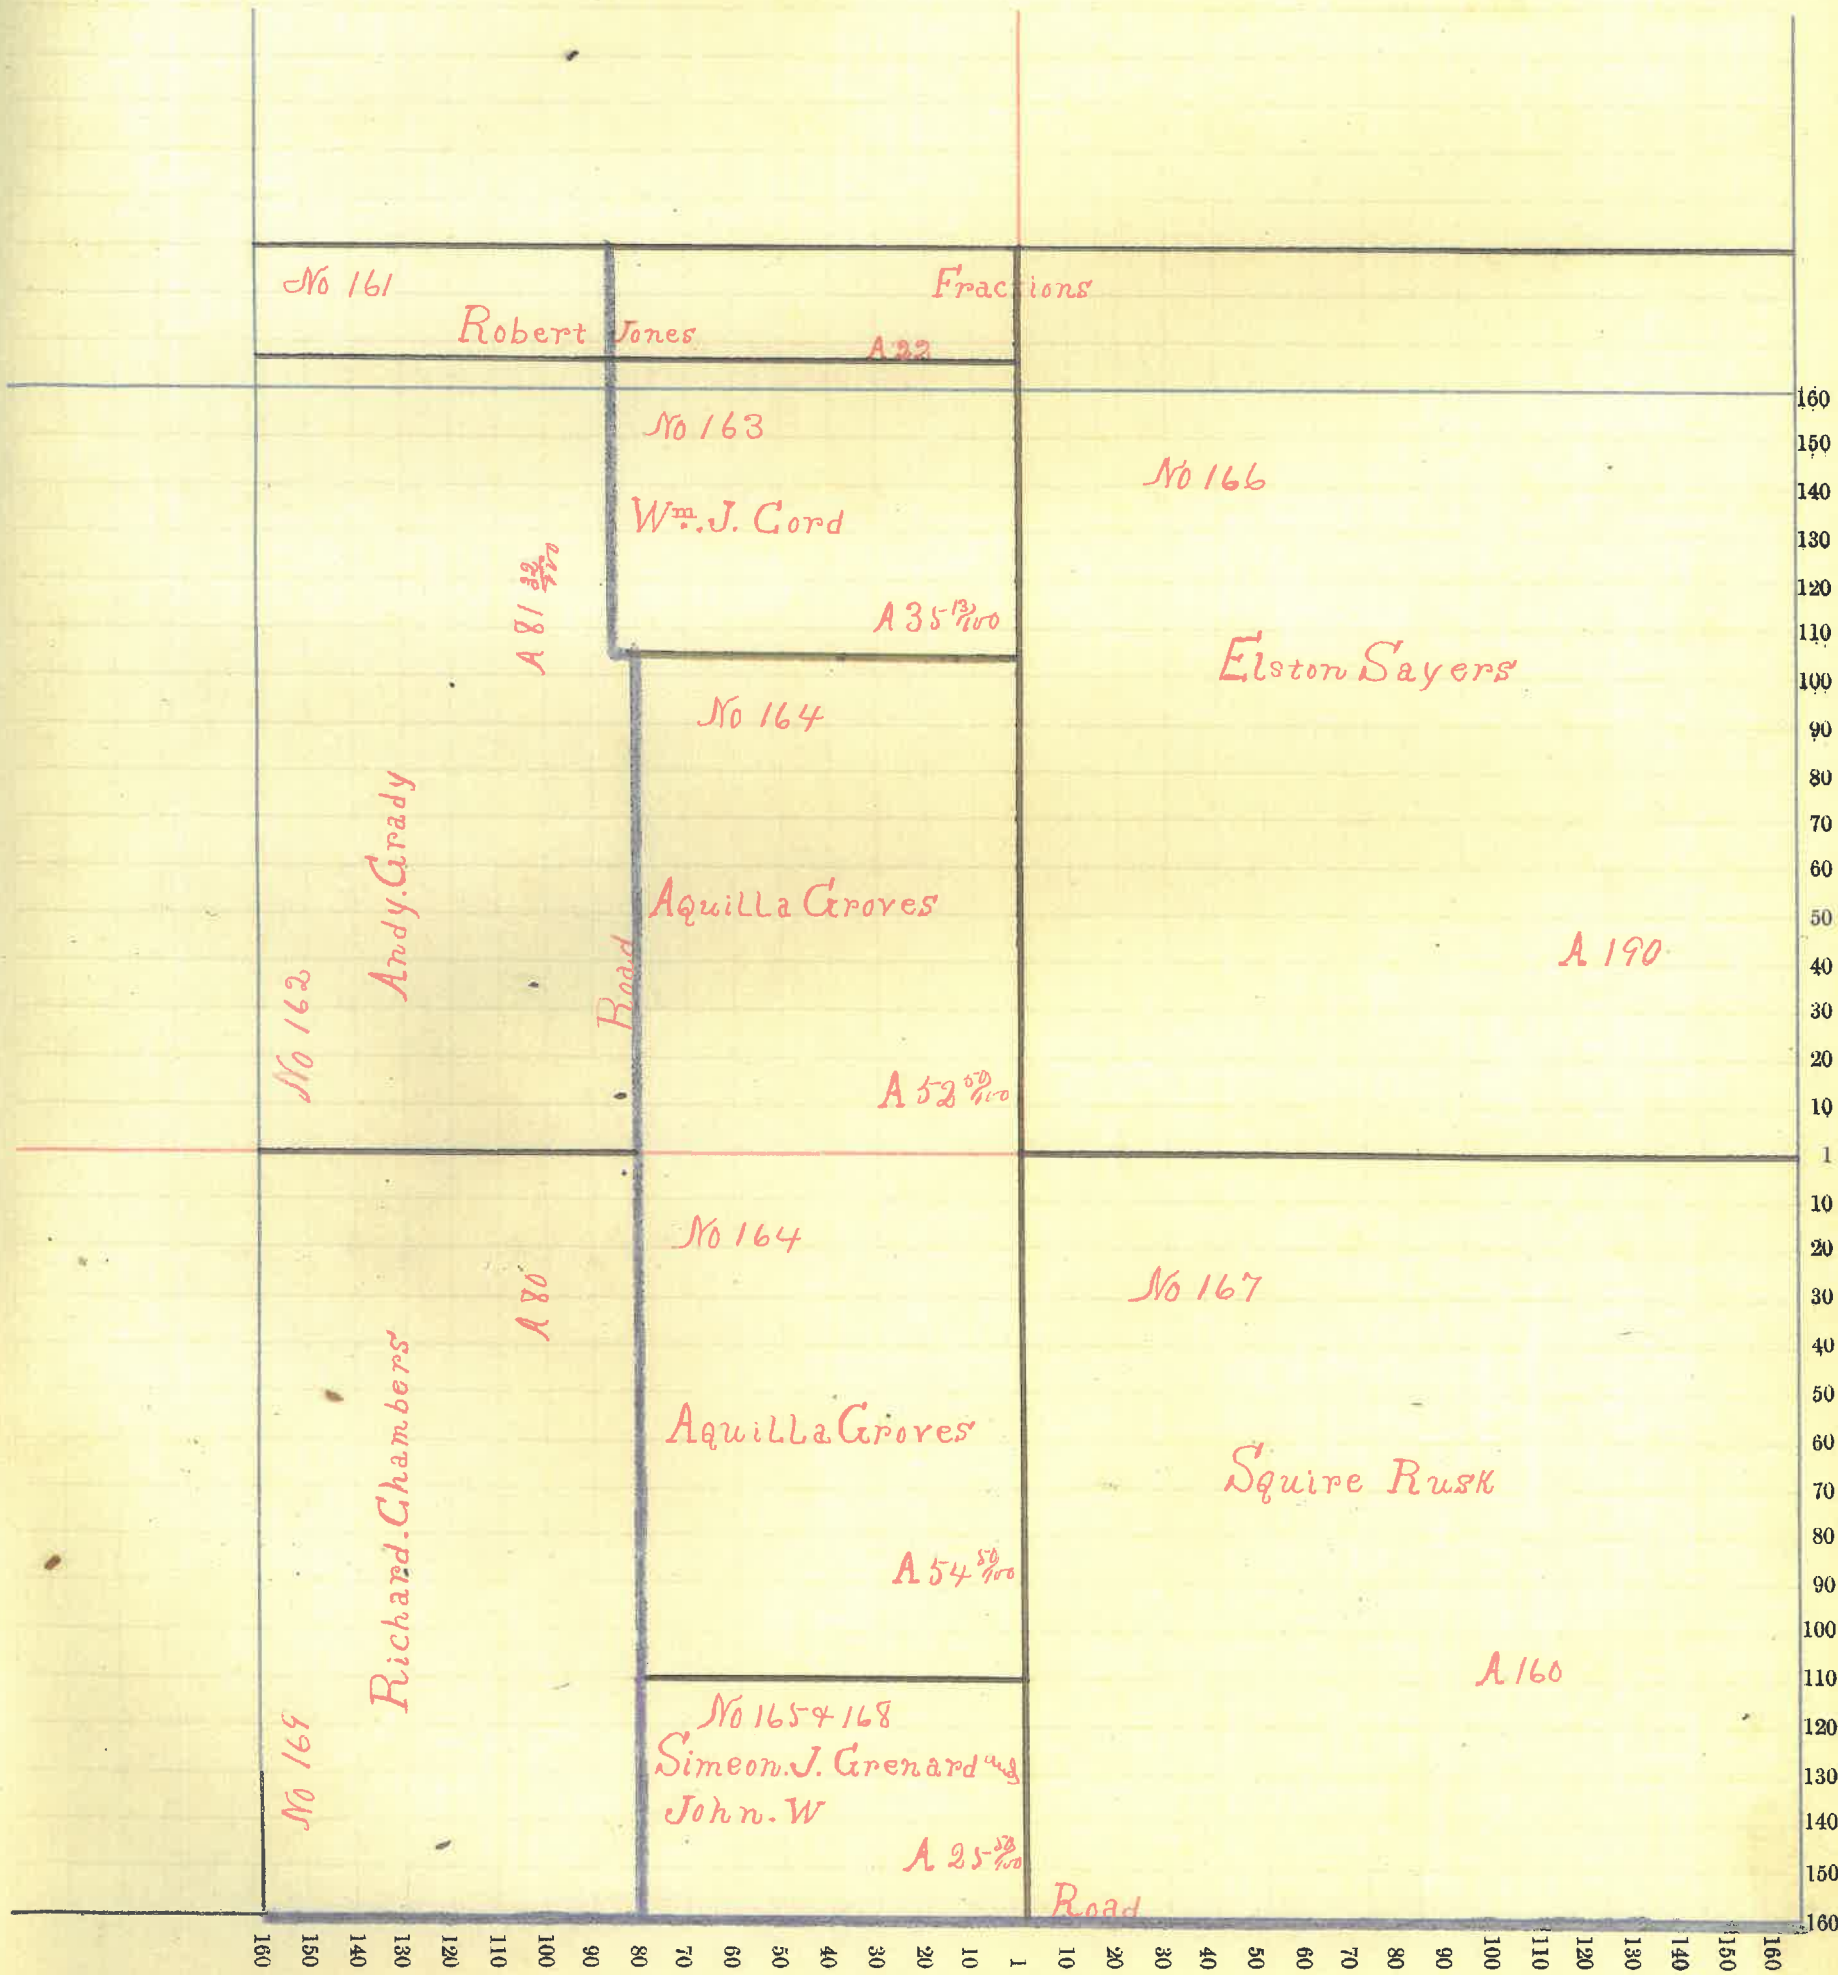 No 161
Fractions
Robert Jones
A 22
No 163
Wm. J. Cord
A 35 13/100
No 166
Elston Sayers
A 190
A 81 32/100
Andy. Grady
No 162
Road
No 164
Aquilla Groves
A 52 50/100
No 164
Aquilla Groves
A 54 50/100
No 167
Squire Rusk
A 160
A 80
Richard. Chambers
No 169
No 165 & 168
Simeon. J. Grenard and
John. W
A 25 50/100
Road
160
150
140
130
120
110
100
90
80
70
60
50
40
30
20
10
1
10
20
30
40
50
60
70
80
90
100
110
120
130
140
150
160
160 150 140 130 120 110 100 90 80 70 60 50 40 30 20 10 1 10 20 30 40 50 60 70 80 90 100 110 120 130 140 150 160